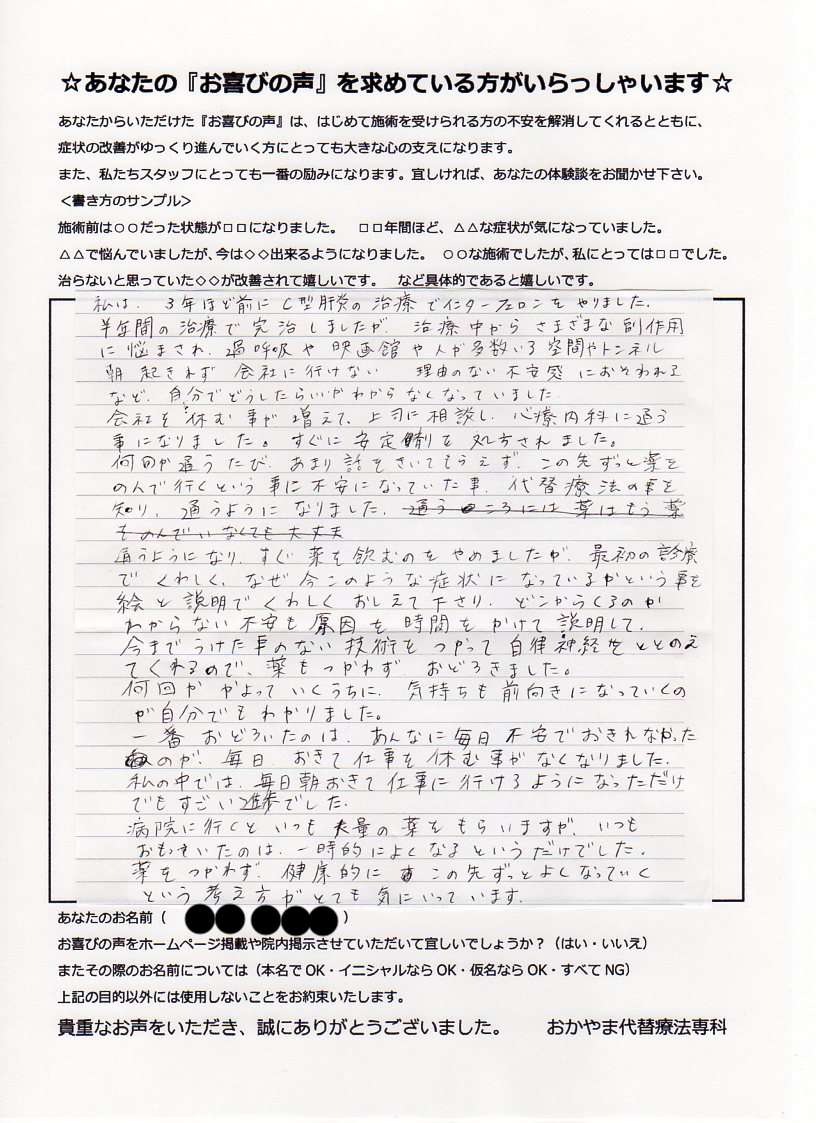 ☆あなたの『お喜びの声』を求めている方がいらっしゃいます☆
あなたからいただけた『お喜びの声』は、はじめて施術を受けられる方の不安を解消してくれるとともに、
症状の改善がゆっくり進んでいく方にとっても大きな心の支えになります。
また、私たちスタッフにとっても一番の励みになります。宜しければ、あなたの体験談をお聞かせ下さい。
＜書き方のサンプル＞
施術前は○○だった状態が□□になりました。　□□年間ほど、△△な症状が気になっていました。
△△で悩んでいましたが、今は◇◇出来るようになりました。　○○な施術でしたが、私にとっては□□でした。
治らないと思っていた◇◇が改善されて嬉しいです。　など具体的であると嬉しいです。
私は、3年ほど前にC型肝炎の治療でインターフェロンをやりました。
半年間の治療で完治しましたが、治療中からさまざまな副作用
に悩まされ、過呼吸や映画館や人が多数いる空間やトンネル
朝起きれず会社に行けない　理由のない不安感におそわれる
など、自分でどうしたらいいかわからなくなっていました。
会社を休む事が増えて、上司に相談し、心療内科に通う
事になりました。すぐに安定剤を処方されました。
何回か通うたび、あまり話をきいてもらえず、この先ずっと薬を
のんで行くという事に不安になっていた事、代替療法の事を
知り、通うようになりました。通うころには薬はもう薬
をのんでいなくても大丈夫
通うようになり、すぐ薬を飲むのをやめましたが、最初の診療
でくわしく、なぜ今このような症状になっているかという事を
絵と説明でくわしくおしえて下さり、どこからくるのか
わからない不安も原因を時間をかけて説明して、
今までうけた事のない技術をつかって自律神経をととのえ
てくれるので、薬もつかわずおどろきました。
何回かかよっていくうちに、気持ちも前向きになっていくの
が自分でもわかりました。
一番おどろいたのは、あんなに毎日不安でおきれなかった
のが、毎日、おきて仕事を休む事がなくなりました。
私の中では、毎日朝おきて仕事に行けるようになっただけ
でもすごい進歩でした。
病院に行くといつも大量の薬をもらいますが、いつも
おもっていたのは、一時的によくなるというだけでした。
薬をつかわず、健康的にこの先ずっとよくなっていく
という考え方がとても気にいっています。
あなたのお名前（　）
お喜びの声をホームページ掲載や院内掲示させていただいて宜しいでしょうか？（はい・いいえ）
またその際のお名前については（本名でOK・イニシャルならOK・仮名ならOK・すべてNG）
上記の目的以外には使用しないことをお約束いたします。
貴重なお声をいただき、誠にありがとうございました。　おかやま代替療法専科